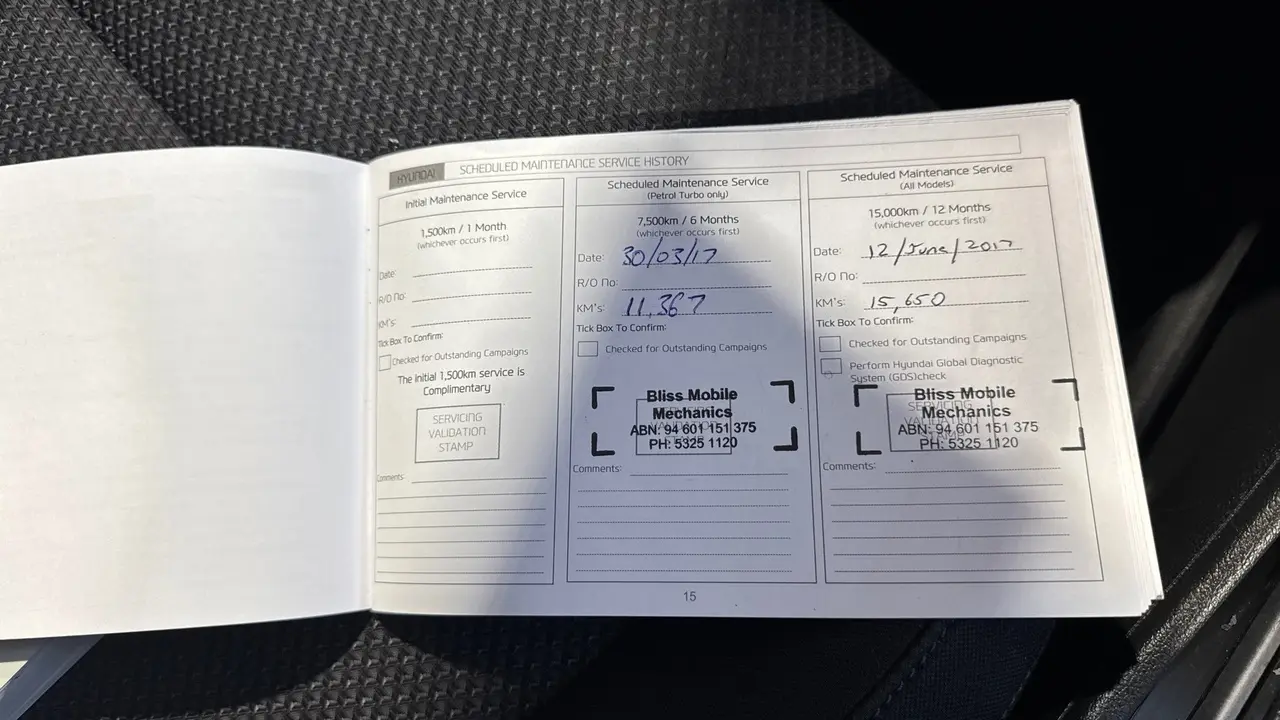 HYUNDAI SCHEDULED MAINTENANCE SERVICE HISTORY
Initial Maintenance Service
1,500km / 1 Month
(whichever occurs first)
Date:
R/O No:
KM's:
Tick Box To Confirm:
Checked for Outstanding Campaigns
The initial 1,500km service is
Complimentary
SERVICING
VALIDATION
STAMP
Comments:
Scheduled Maintenance Service
(Petrol Turbo only)
7,500km / 6 Months
(whichever occurs first)
Date: 30/03/17
R/O No:
KM's: 11,367
Tick Box To Confirm:
Checked for Outstanding Campaigns
Bliss Mobile
Mechanics
ABN: 94 601 151 375
PH: 5325 1120
Comments:
Scheduled Maintenance Service
(All Models)
15,000km / 12 Months
(whichever occurs first)
Date: 12/June/2017
R/O No:
KM's: 15,650
Tick Box To Confirm:
Checked for Outstanding Campaigns
Perform Hyundai Global Diagnostic
System (GDS)check
SERVICING
Bliss Mobile
Mechanics
VALIDATION
ABN: 94 601 151 375
PH: 5325 1120
Comments:
15